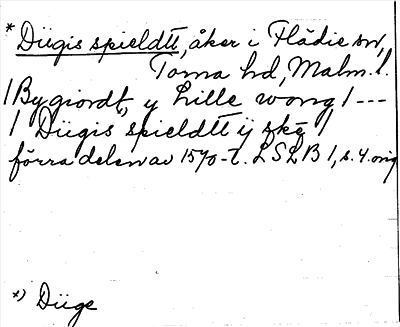 * Dügis spieldtt, åker i Flädie sn,
Torna hd, Malm. l.
/ Bygiordt, y Lille wong / ---
/ Dügis spieldtt ÿ skē /
förra delen av 1570-t. LSLB 1, s. 4. orig
*) Düge